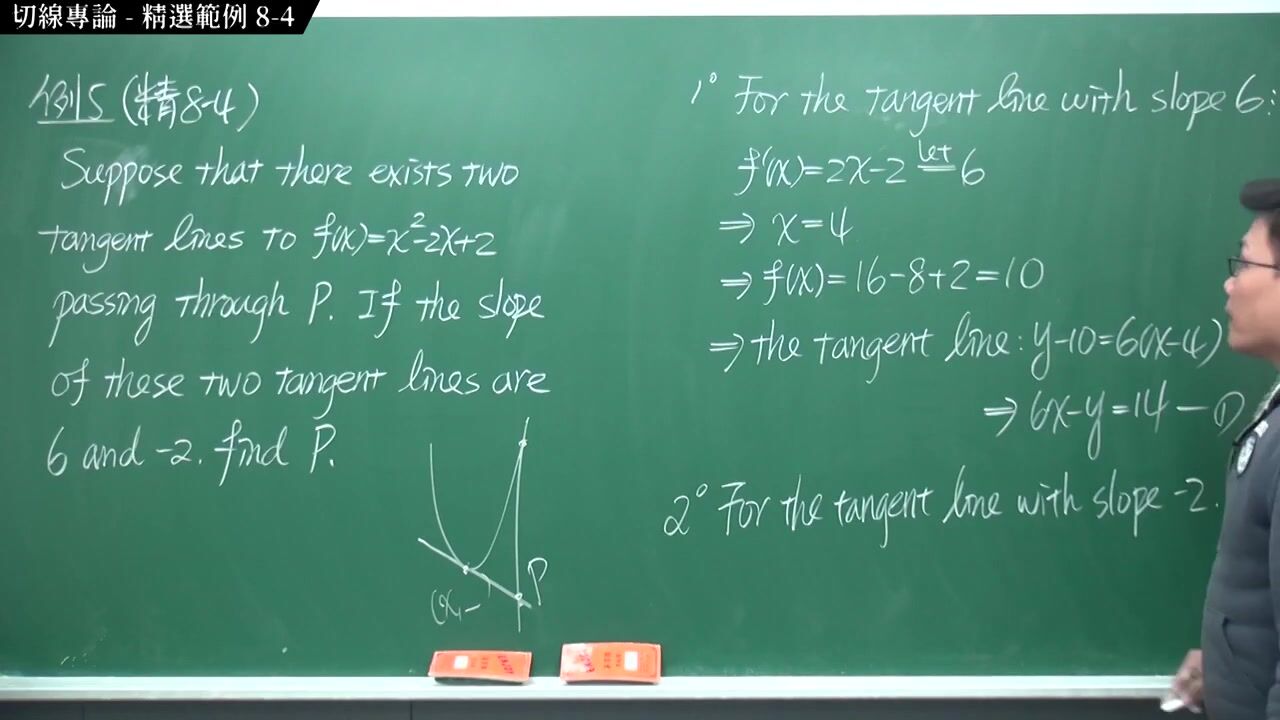 切線專論 - 精選範例 8-4
例5 (精8-4)
Suppose that there exists two
tangent lines to f(x)=x²-2x+2
passing through P. If the slope
of these two tangent lines are
6 and -2. find P.
P
(x,-
1° For the tangent line with slope 6:
f'(x)=2x-2 let = 6
⇒ x=4
⇒ f(x)=16-8+2=10
⇒ the tangent line: y-10=6(x-4)
⇒ 6x-y=14 — ①
2° For the tangent line with slope -2.